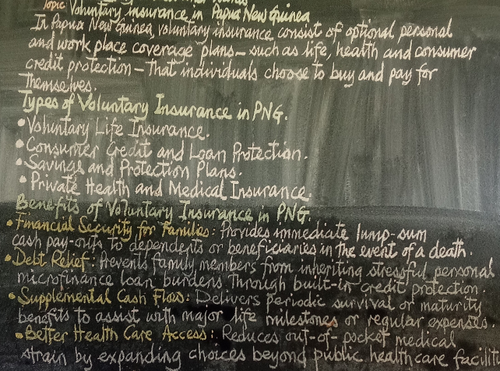 Topic Voluntary insurance in Papua New Guinea
In Papua New Guinea, voluntary insurance consist of optional personal
and work place coverage plans— such as life, health and consumer
credit protection— that individuals choose to buy and pay for
themselves.
Types of Voluntary Insurance in PNG.
• Voluntary Life Insurance.
• Consumer Credit and Loan Protection.
• Savings and Protection Plans.
• Private Health and Medical Insurance.
Benefits of Voluntary Insurance in PNG.
• Financial Security for Families: Provides immediate lump-sum
cash pay-outs to dependents or beneficiaries in the event of a death.
• Debt Relief: Prevents family members from inheriting stressful personal
microfinance loan burdens through built-in credit protection.
• Supplemental Cash Flow: Delivers periodic survival or maturity
benefits to assist with major life milestones or regular expenses.
• Better Health Care Access: Reduces out-of-pocket medical
strain by expanding choices beyond public healthcare facilit